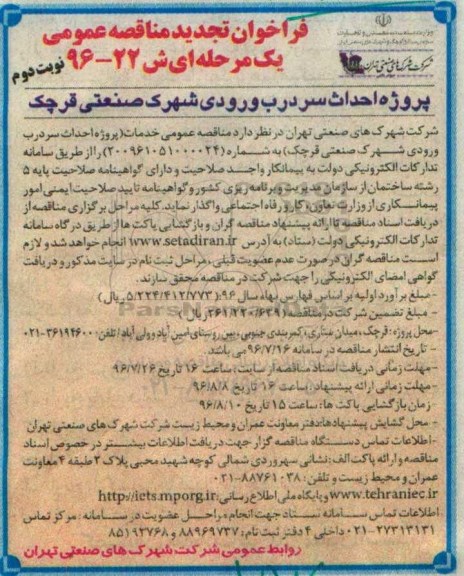 فراخوان تجدید مناقصه عمومی
یک مرحله ای ش ۲۲-۹۶ نوبت دوم
شرکت شهرک های صنعتی تهران
پروژه احداث سردرب ورودی شهرک صنعتی قرچک
شرکت شهرک های صنعتی تهران در نظر دارد مناقصه عمومی خدمات(پروژه احداث سردرب
ورودی شهرک صنعتی قرچک) به شماره (۲۰۰۹۶۱۰۵۱۰۰۰۰۲۴) را از طریق سامانه
تدارکات الکترونیکی دولت به پیمانکار واجد صلاحیت و دارای گواهینامه صلاحیت پایه ۵
رشته ساختمان از سازمان مدیریت و برنامه ریزی کشور و گواهینامه تایید صلاحیت ایمنی امور
پیمانکاری از وزارت تعاون، کار و رفاه اجتماعی واگذار نماید. کلیه مراحل برگزاری مناقصه از
دریافت اسناد مناقصه تا ارائه پیشنهاد مناقصه گران و بازگشایی پاکت ها از طریق درگاه سامانه
تدارکات الکترونیکی دولت (ستاد) به آدرس www.setadiran.ir انجام خواهد شد و لازم
است مناقصه گران در صورت عدم عضویت قبلی، مراحل ثبت نام در سایت مذکور و دریافت
گواهی امضای الکترونیکی را جهت شرکت در مناقصه محقق سازند.
-مبلغ برآورد اولیه بر اساس فهارس بهاء سال ۹۶:(۵/۲۲۴/۴۱۲/۷۷۳ریال)
- مبلغ تضمین شرکت در مناقصه:(۳۶۱/۲۲۰/۶۳۹ریال)
-محل پروژه: قرچک، میدان ستاری، کمربندی جنوبی، بین روستای امین آباد و ولی آباد/ تلفن: ۳۶۱۹۴۶۰۰-۰۲۱
- تاریخ انتشار مناقصه در سامانه ۹۶/۷/۱۶ می باشد.
-مهلت زمانی دریافت اسناد مناقصه از سایت: ساعت ۱۶ تاریخ ۹۶/۷/۲۶
-مهلت زمانی ارائه پیشنهاد: ساعت ۱۶ تاریخ ۹۶/۸/۸
-زمان بازگشایی پاکت ها: ساعت ۱۵ تاریخ ۹۶/۸/۱۰
- محل گشایش پیشنهادها:دفتر معاونت عمران و محیط زیست شرکت شهرک های صنعتی تهران
-اطلاعات تماس دستگاه مناقصه گزار جهت دریافت اطلاعات بیشتر در خصوص اسناد
مناقصه و ارائه پاکت الف: نشانی سهروردی شمالی کوچه شهید محبی پلاک ۲ طبقه ۴ معاونت
عمران و محیط زیست و تلفن: ۸۸۷۶۱۰۳۸-۰۲۱
www.tehraniec.ir و پایگاه ملی اطلاع رسانی:http://iets.mporg.ir
اطلاعات تماس سامانه ستاد جهت انجام مراحل عضویت در سامانه: مرکز تماس
۲۷۳۱۳۱۳۱-۰۲۱ داخلی ۴ دفتر ثبت نام: ۸۸۹۶۹۷۳۷ و ۸۵۱۹۳۷۶۸
روابط عمومی شرکت شهرک های صنعتی تهران